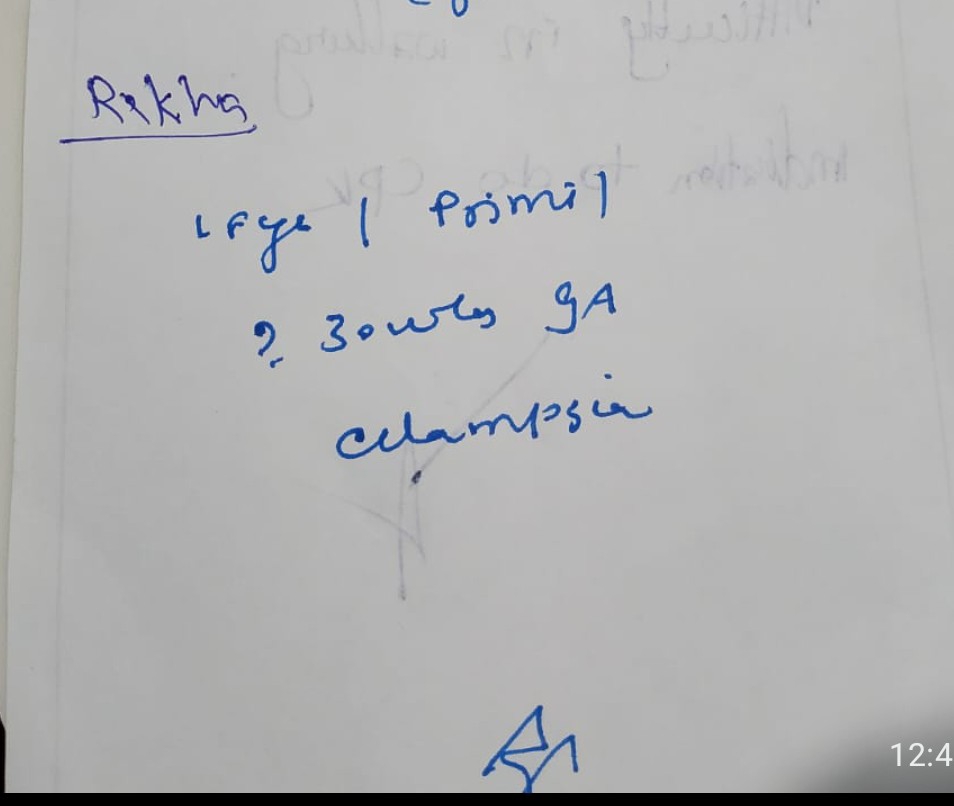 Rekha
yr / Primi /
? 30wks GA
eclampsia
12:4